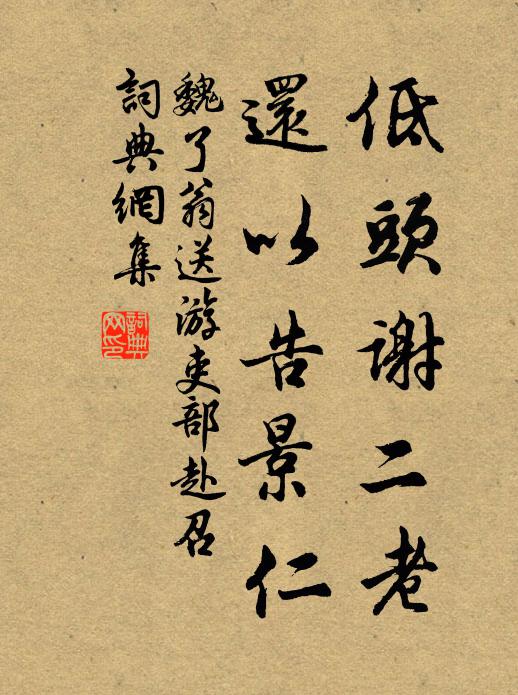 低頭謝二老
還以告景仁
魏了翁送游吏部赴召
詞典網集
詞典網印